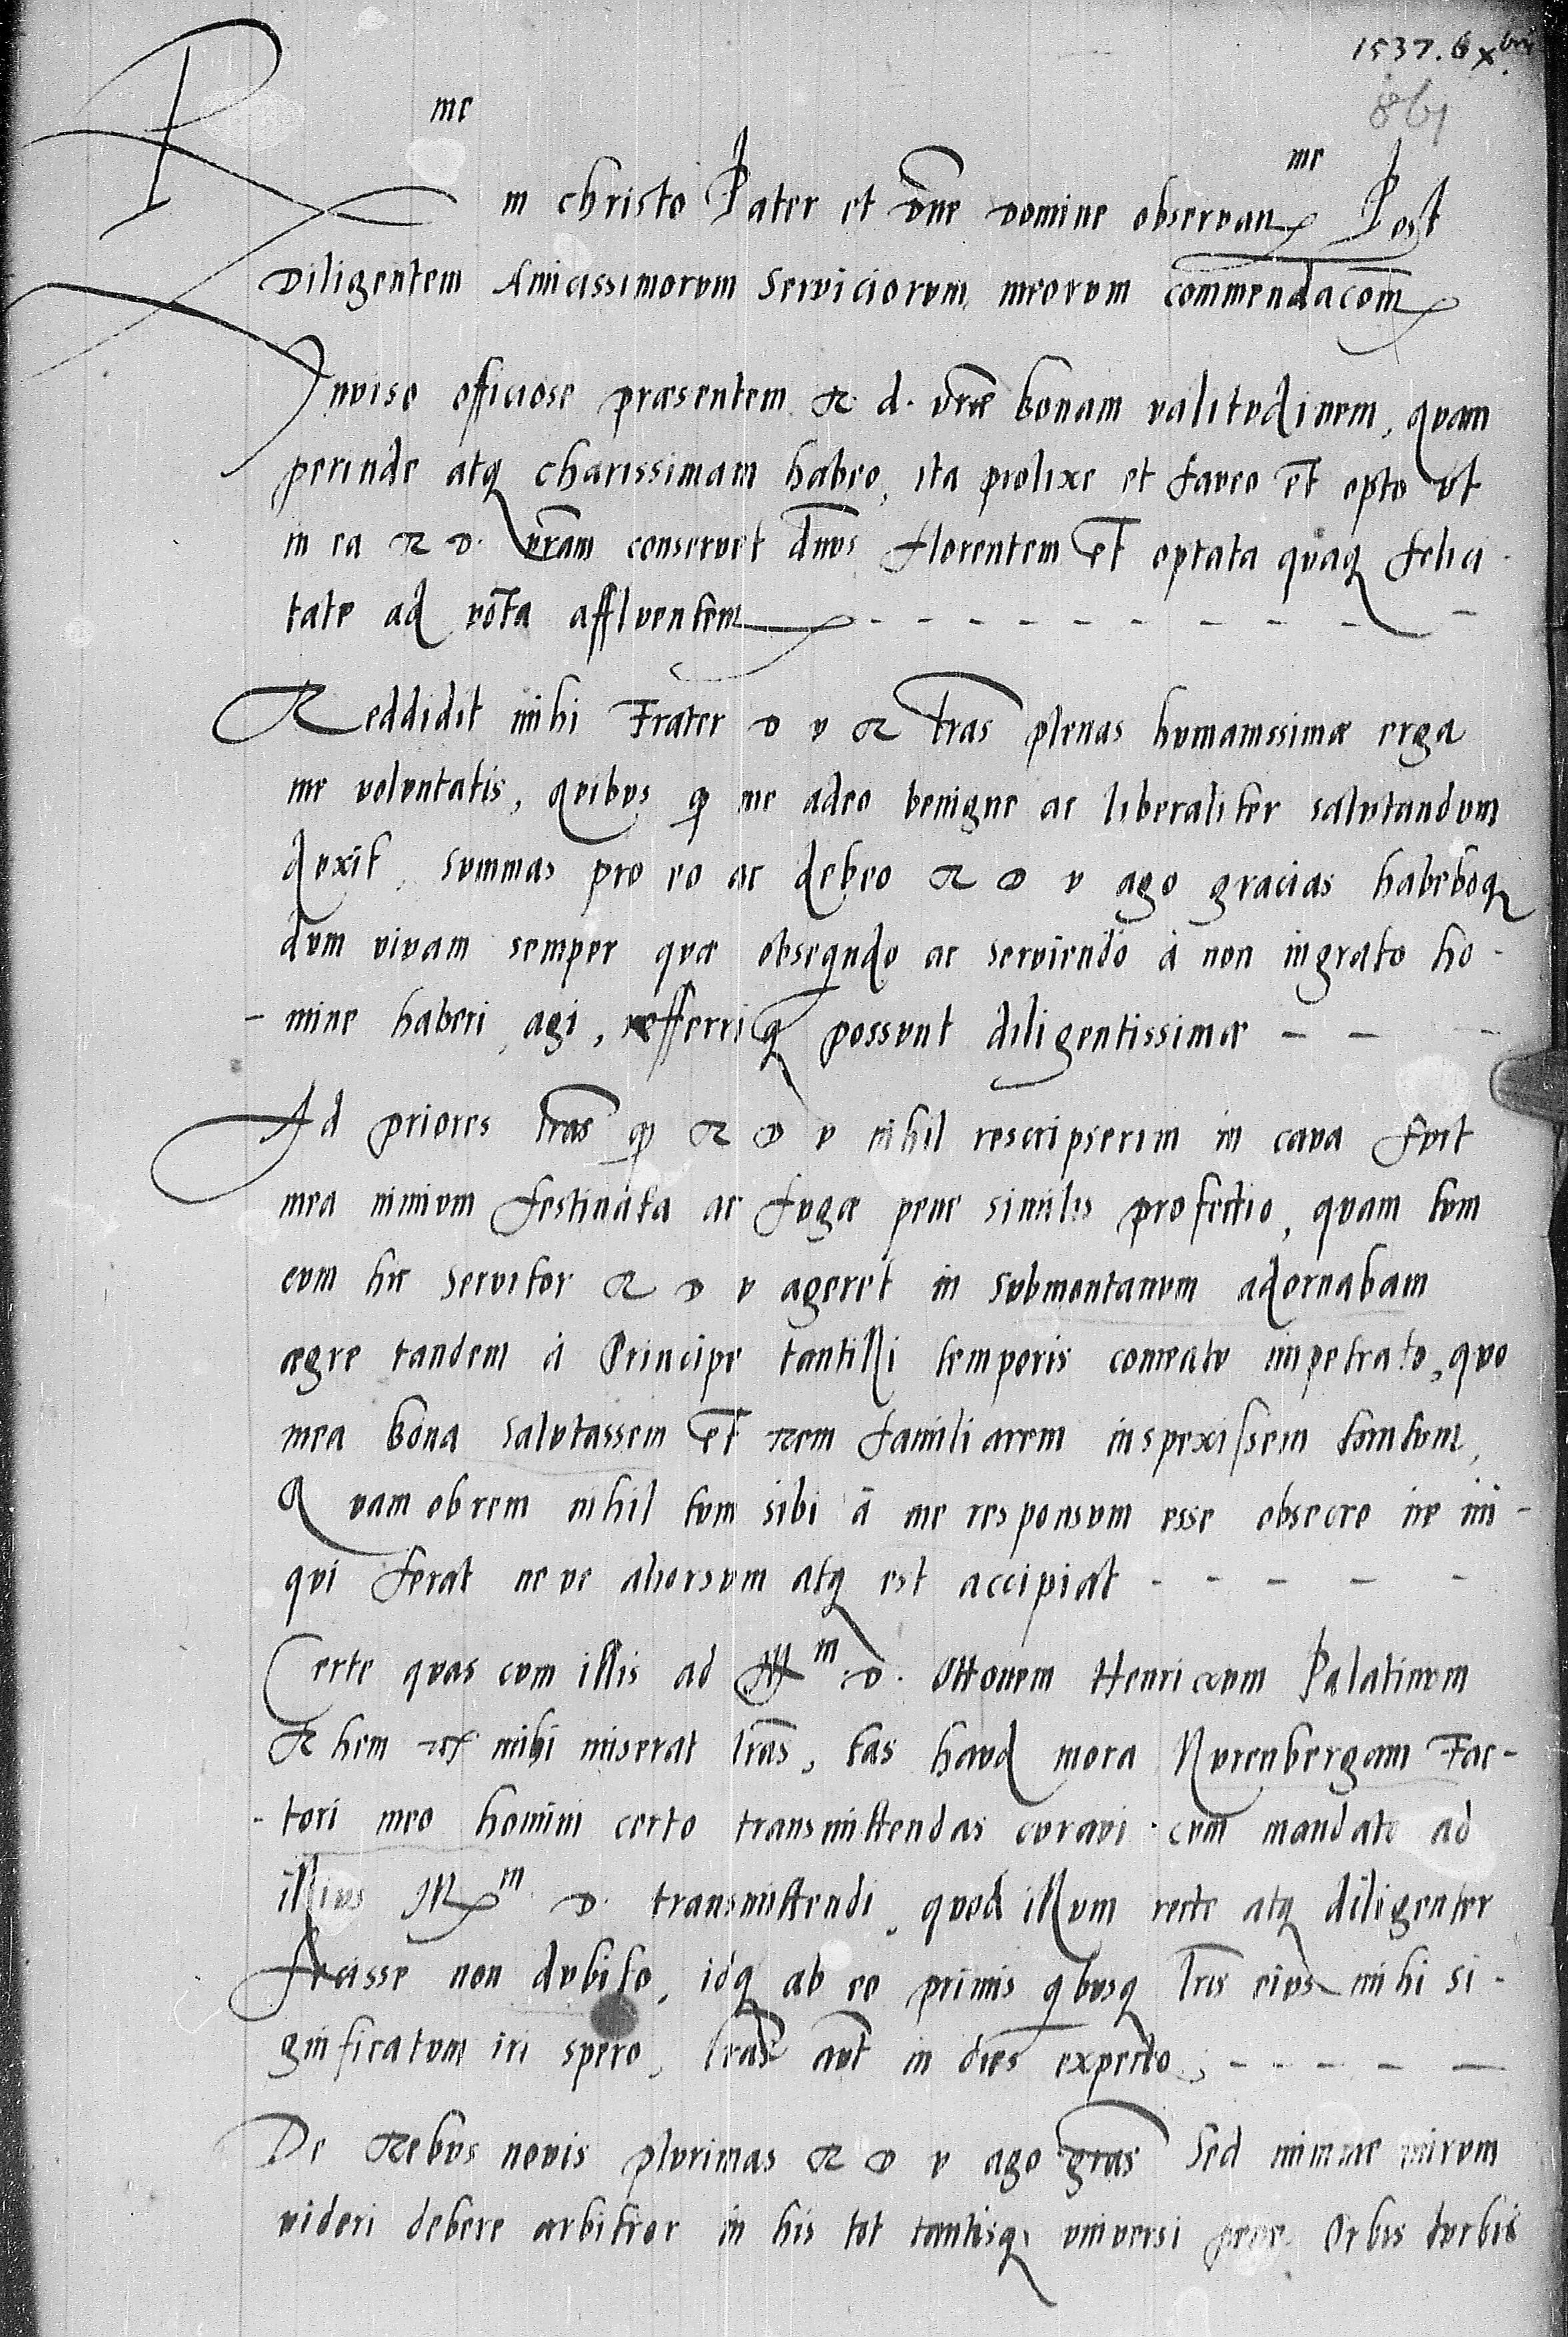 1537. 6 Xbris
861
Rme in christo Pater et dne domine observanme Post
diligentem Amicissimorum serviciorum meorum commendacom
Inviso officiose præsentem R d. vræ bonam valitudinem, quam
perinde atq charissimam habeo, ita prolixe et faveo et opto ut
in ea R D. vram conservet dnus florentem et optata quaq felici
tate ad vota affluentem - - - - - - - - -
Reddidit mihi Frater D V R lras plenas humanissimæ erga
me voluntatis, quibus q me adeo benigne ac liberaliter salutandum
duxit, summas pro eo ac debeo R D V ago gracias habeboq
dum vivam semper quæ obseqndo ac serviendo à non ingrato ho-
-mine haberi, agi, refferriq possunt diligentissimæ - - -
Ad priores lras q R D V nihil rescripserim in caua fuit
mea nimium festinata ac fugæ pene similis profectio, quam tum
cum hic servitor R D V ageret in submontanum adornabam
ægre tandem à Principe tantilli temporis comeatu impetrato, quo
mea bona salutassem et rem familiarem inspexissem tantum,
Quam obrem nihil tum sibi à me responsum esse obsecro ne ini-
qui ferat neve aliorsum atq est accipiat - - - - -
Certe quas cum illis ad Mm D. Ottonem Henricum Palatinum
Rhem mihi miserat lras, eas haud mora Nurenbergam Fac-
-tori meo homini certo transmittendas curavi cum mandato ad
illius Mm D. transmittendi, quod illum recte atq diligenter
fecisse non dubito, idq ab eo primis qbusq lris eius mihi si-
gnificatum iri spero, lras aut in dies expecto, - - - - -
De Rebus novis plurimas R D V ago gras sed minime mirum
videri debere arbitror in his tot tantisq universi pene Orbis turbis